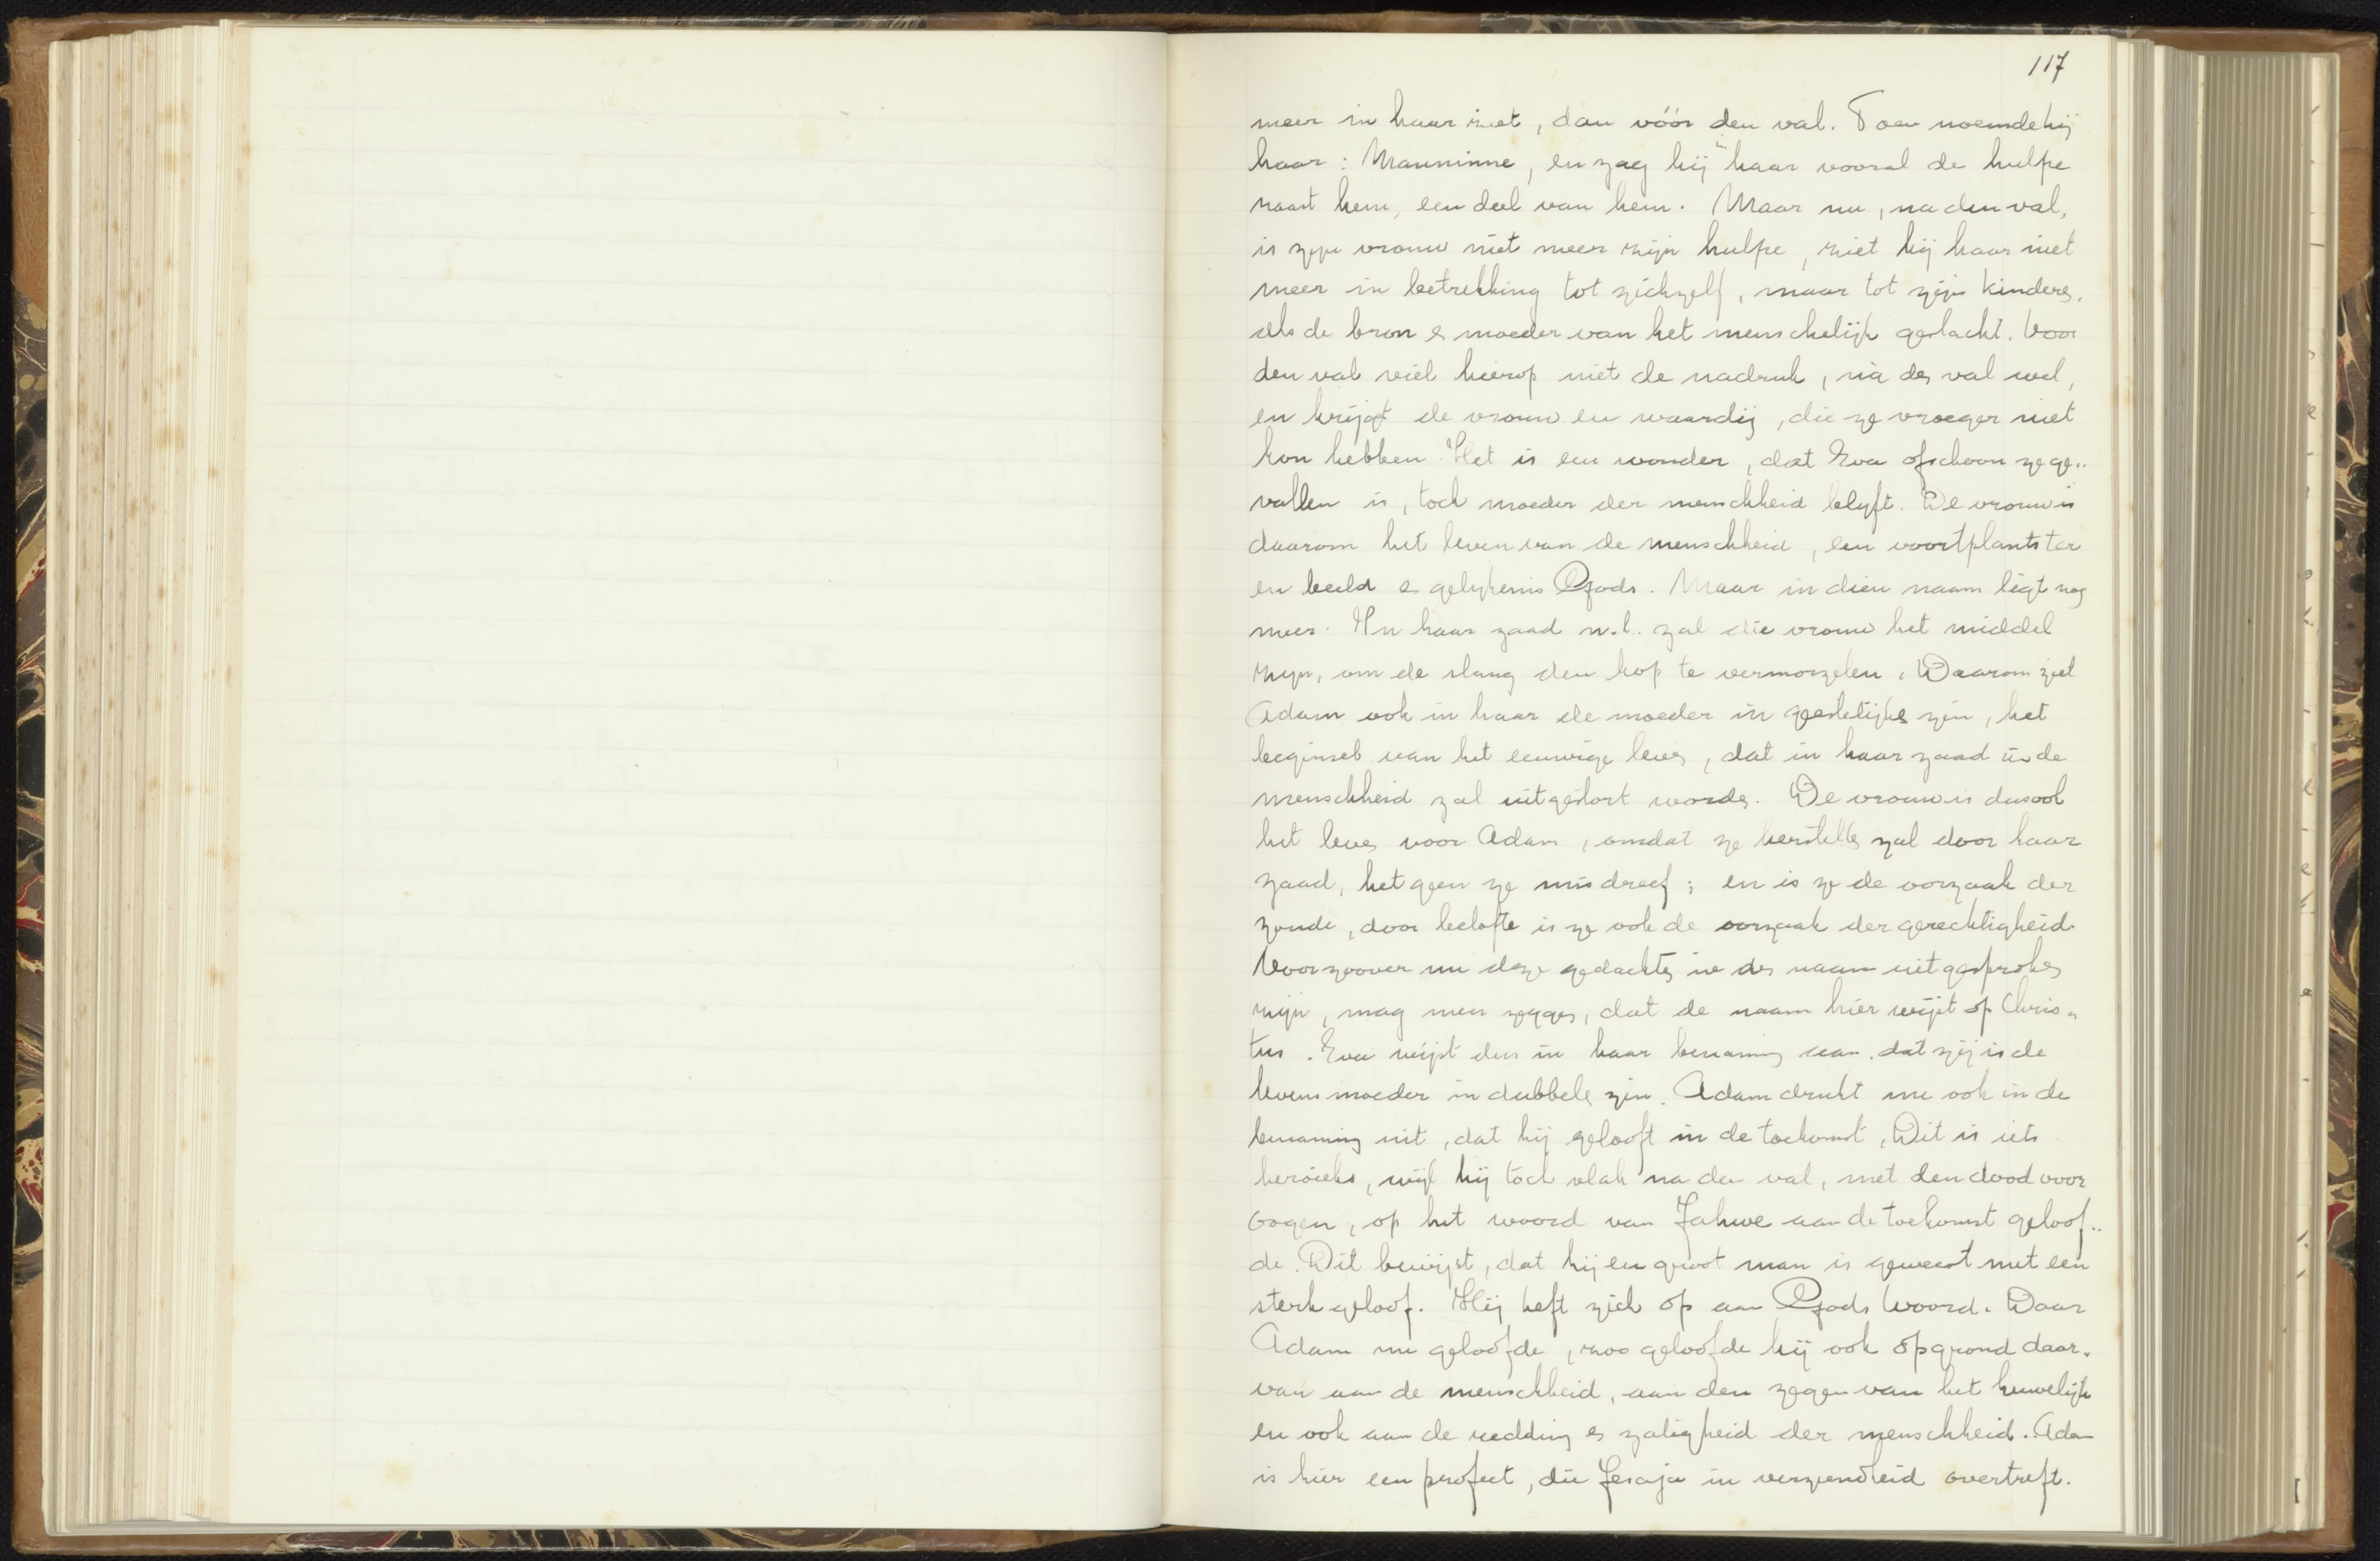 117
meer in haar ziet, dan vóór den val. Toen noemde hij
haar: Manninne, en zag hij in haar vooral de hulpe
naast hem, een deel van hem. Maar nu, na den val,
is zijn vrouw niet meer zijn hulpe, ziet hij haar niet
meer in betrekking tot zichzelf, maar tot zijn kinderen,
als de bron en moeder van het menschelijk geslacht. Voor
den val viel hierop niet de nadruk, nà den val wel,
en krijgt de vrouw een waardij, die ze vroeger niet
kon hebben. Het is een wonder, dat Eva ofschoon ze ge-
vallen is, toch moeder der menschheid blijft. De vrouw is
daarom het leven van de menschheid, een voortplantster
en beeld en gelijkenis Gods. Maar in dien naam ligt nog
meer. In haar zaad n.l. zal die vrouw het middel
zijn, om de slang den kop te vermorzelen. Daarom ziet
Adam ook in haar de moeder in geestelijken zin, het
beginsel van het eeuwige leven, dat in haar zaad in de
menschheid zal uitgestort worden. De vrouw is dus ook
het leven voor Adam, omdat ze herstellen zal door haar
zaad, hetgeen ze misdreef; en is ze de oorzaak der
zonde, door belofte is ze ook de oorzaak der gerechtigheid.
Voorzoover nu deze gedachten in den naam uitgesproken
zijn, mag men zeggen, dat de naam hier wijst op Chris-
tus. Eva wijst dus in haar benaming aan, dat zij is de
levensmoeder in dubbelen zin. Adam drukt nu ook in de
benaming uit, dat hij gelooft in de toekomst. Dit is iets
heroieks, wijl hij toch vlak na den val, met den dood voor
oogen, op het woord van Jahwe aan de toekomst geloof-
de. Dit bewijst, dat hij een groot man is geweest met een
sterk geloof. Hij heft zich op aan Gods Woord. Daar
Adam nu geloofde, zoo geloofde hij ook op grond daar-
van aan de menschheid, aan den zegen van het huwelijk
en ook aan de redding en zaligheid der menschheid. Adam
is hier een profeet, die Jesaja in verziendheid overtreft.